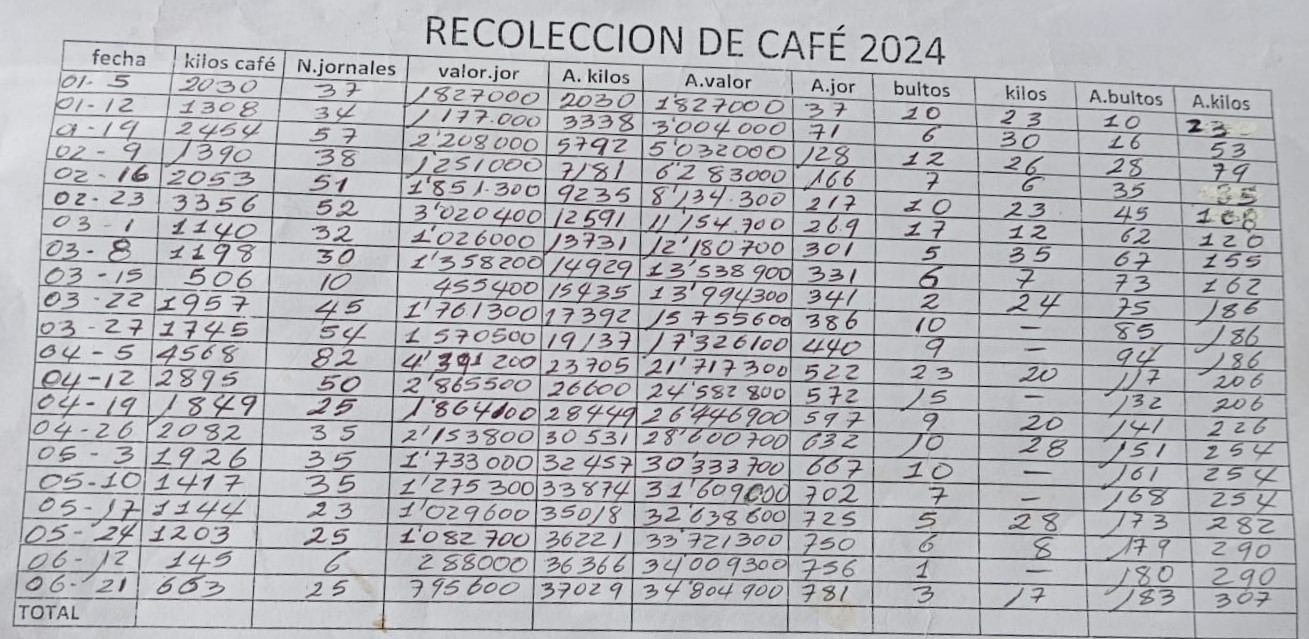 RECOLECCION DE CAFÉ 2024
fecha kilos café N.jornales valor.jor A. kilos A.valor A.jor bultos kilos A.bultos A.kilos
01-5 2030 37 1827000 2030 1'827000 37 10 23 10 23
01-12 1308 34 1177.000 3338 3'004000 71 6 30 16 53
01-19 2454 57 2'208000 5792 5'032000 128 12 26 28 79
02-9 1390 38 1'251000 7181 6'283000 166 7 6 35 85
02-16 2053 51 1'851.300 9235 8'134.300 217 10 23 45 108
02-23 3356 52 3'020400 12591 11'154.700 269 17 12 62 120
03-1 1140 32 1'026000 13731 12'180700 301 5 35 67 155
03-8 1198 30 1'358200 14929 13'538900 331 6 7 73 162
03-15 506 10 455400 15435 13'994300 341 2 24 75 186
03-22 1957 45 1'761300 17392 15755600 386 10 — 85 186
03-27 1745 54 1570500 19137 17'326100 440 9 — 94 186
04-5 4568 82 4'391200 23705 21'717300 522 23 20 117 206
04-12 2895 50 2'865500 26600 24'582800 572 15 — 132 206
04-19 1849 25 1'864100 28449 26'446900 597 9 20 141 226
04-26 2082 35 2'153800 30531 28'600700 632 10 28 151 254
05-3 1926 35 1'733000 32457 30'333700 667 10 — 161 254
05-10 1417 35 1'275300 33874 31'609000 702 7 — 168 254
05-17 1144 23 1'029600 35018 32'638600 725 5 28 173 282
05-24 1203 25 1'082700 36221 33'721300 750 6 8 179 290
06-12 145 6 288000 36366 34'009300 756 1 — 180 290
06-21 663 25 795600 37029 34'804900 781 3 17 183 307
TOTAL